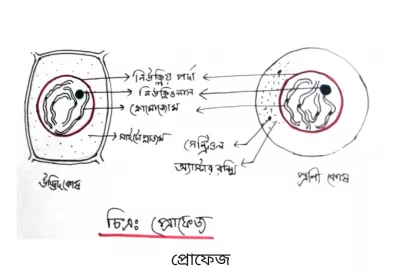 নিউক্লিয় পর্দা
নিউক্লিওলাস
ক্রোমোজোম
সাইটোপ্লাজম
সেন্ট্রিওল
অ্যাস্টার রশ্মি
উদ্ভিদকোষ
প্রাণী কোষ
চিত্র: প্রোফেজ
প্রোফেজ